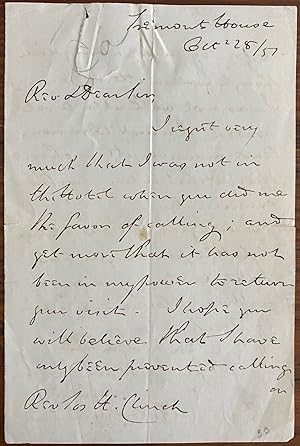 Tremont House
Oct 28/57
Rev & Dear Sir
I regret very
much that I was not in
the Hotel when you did me
the favor of calling; and
yet more that it has not
been in my power to return
your visit. I hope you
will believe that I have
only been prevented calling
on
Rev Jos H. Clinch